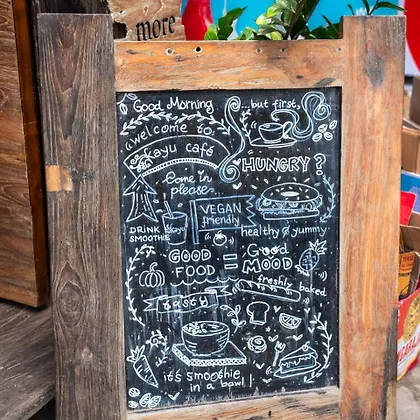 more
Good Morning
...but first,
welcome to:
kayu café
HUNGRY?
Come in
please
VEGAN
friendly
DRINK
SMOOTHIE
healthy & yummy
GOOD
FOOD
=
Good
MOOD
freshly baked
tasty
it's smoothie
in a bowl!